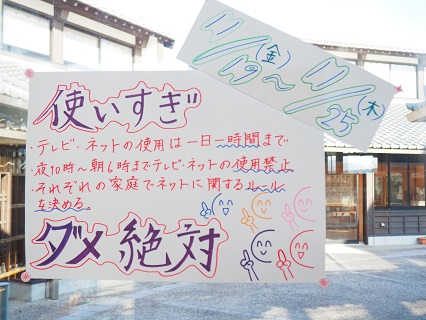 11/19(金)~11/25(木)
使いすぎ
・テレビ・ネットの使用は一日一時間まで
夜10時~朝6時までテレビ・ネットの使用禁止
・それぞれの家庭でネットに関するルール
を決める。
ダメ絶対